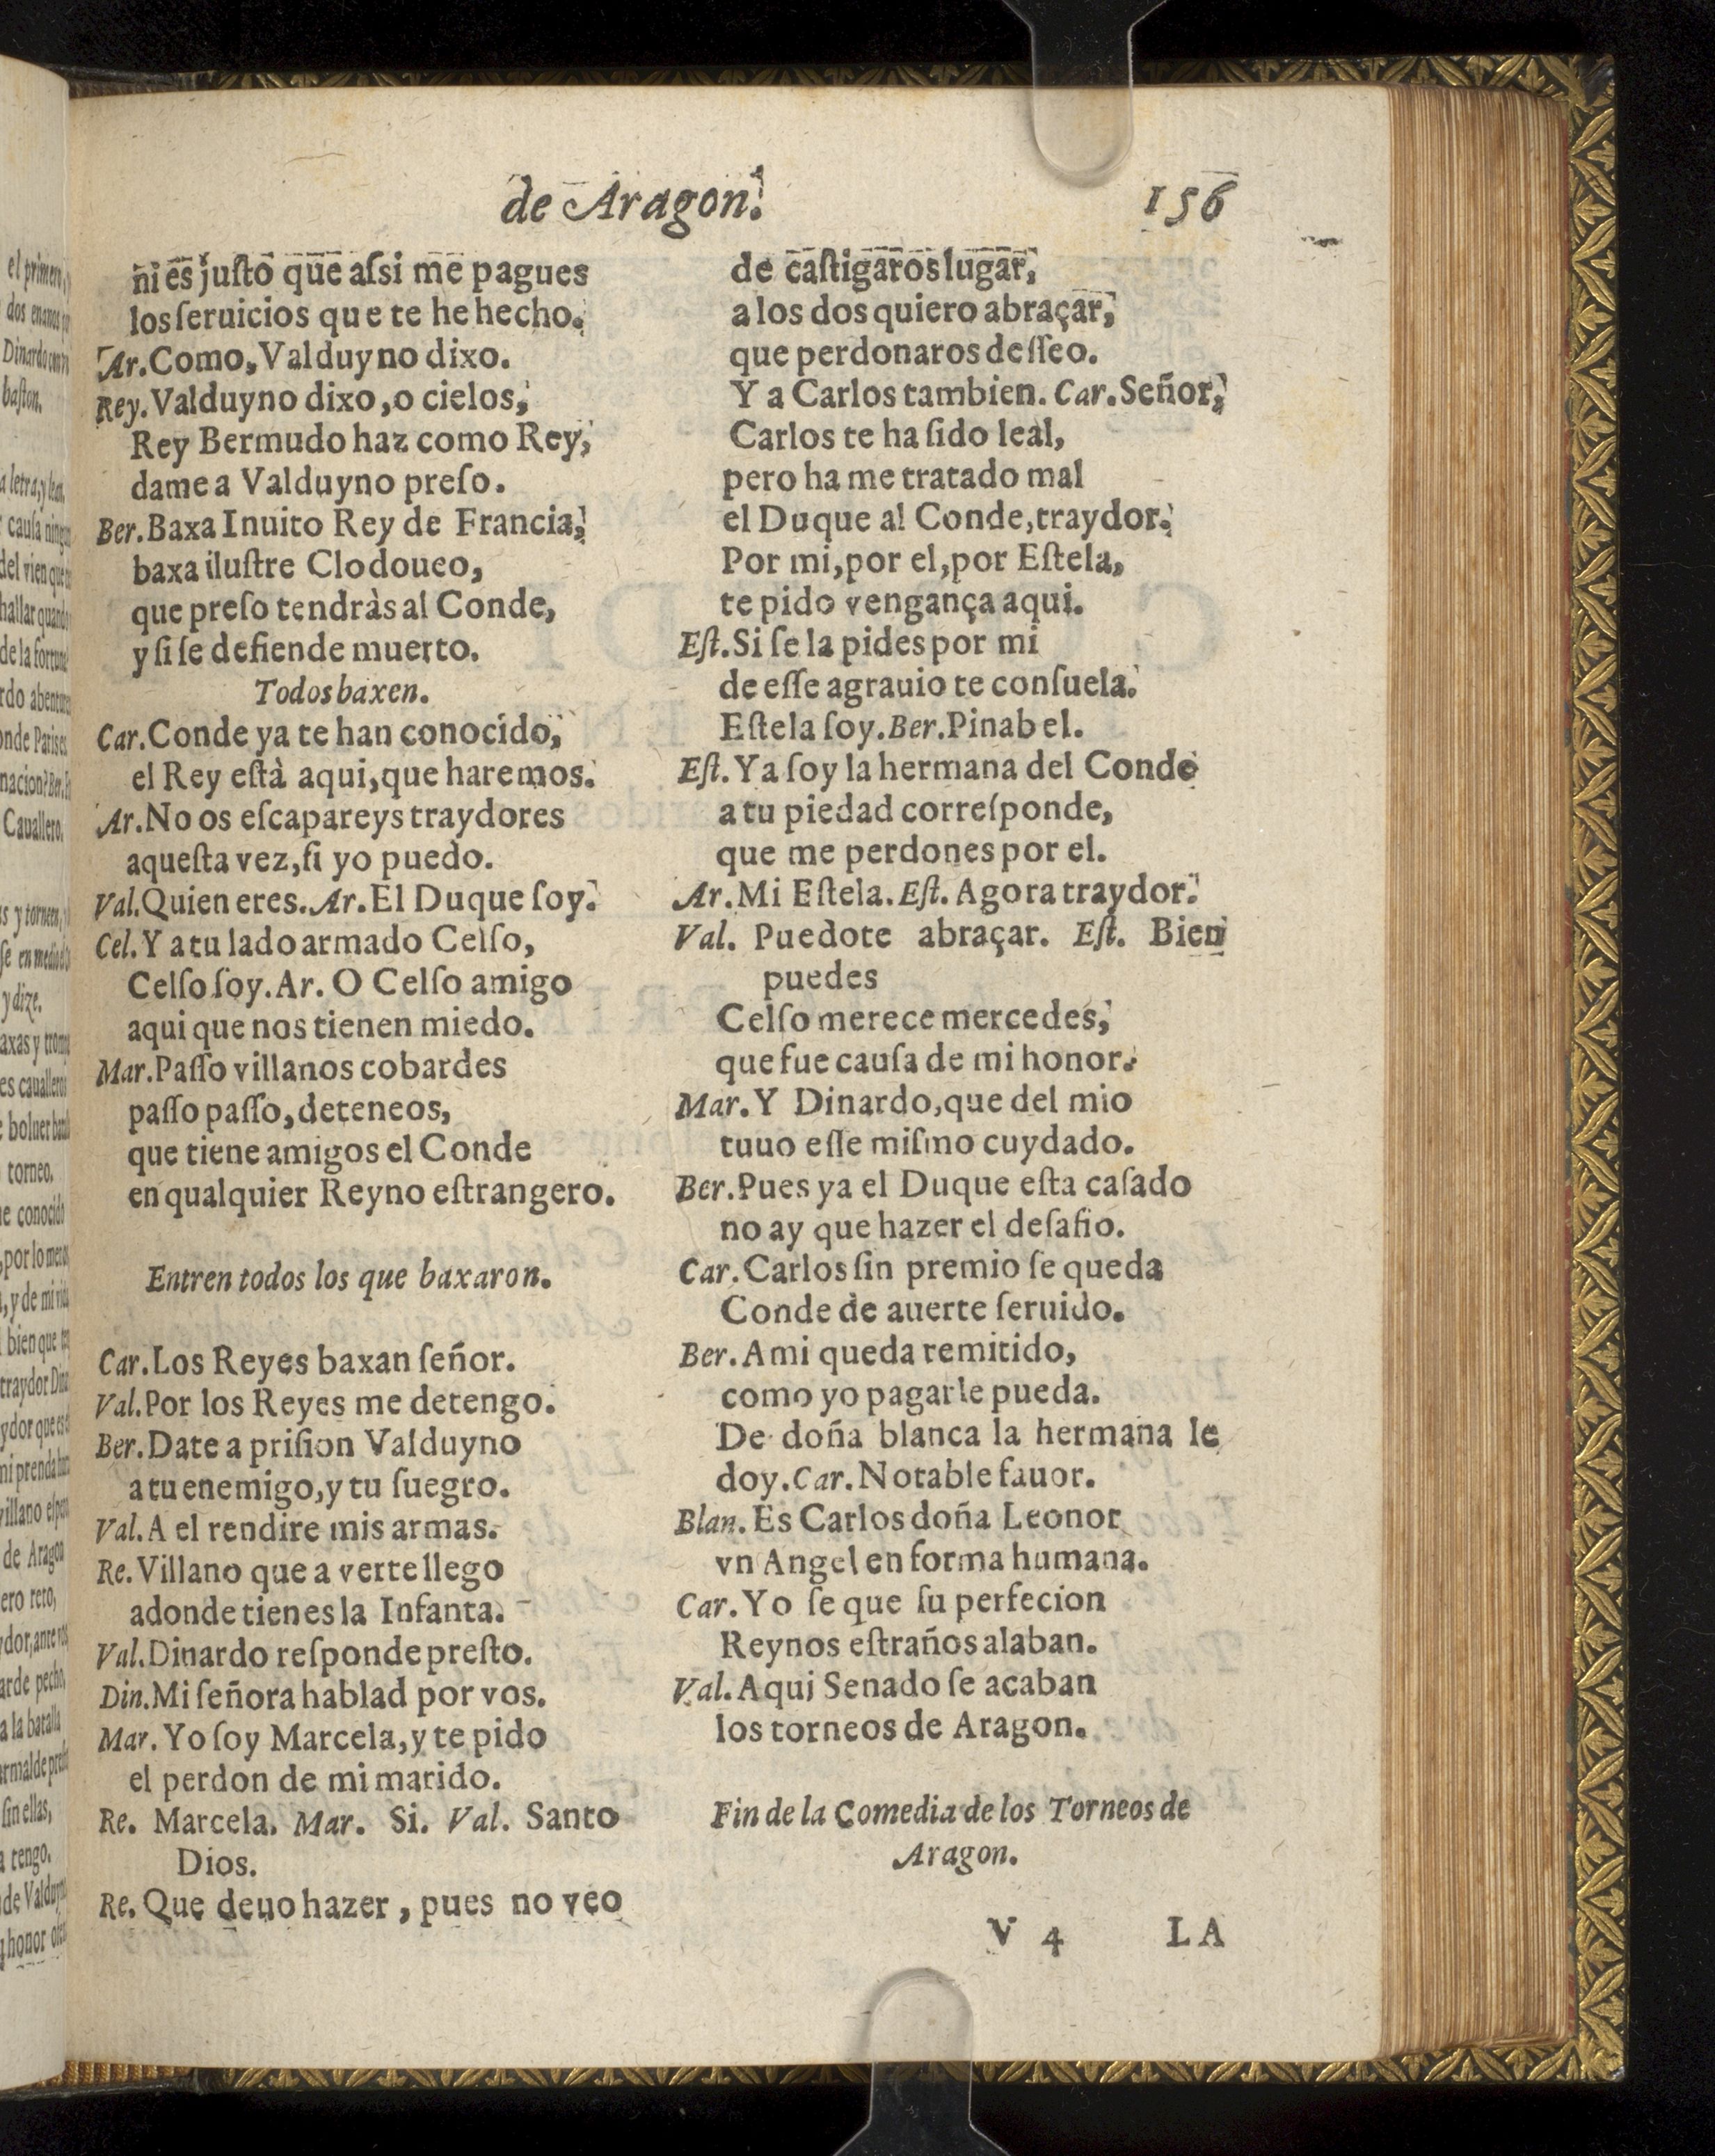 de Aragon.
156
ni es juſto que aſsi me pagues
los ſeruicios que te he hecho.
Ar. Como, Valduyno dixo.
Rey. Valduyno dixo, o cielos,
Rey Bermudo haz como Rey,
dame a Valduyno preſo.
Ber. Baxa Inuito Rey de Francia,
baxa iluſtre Clodoueo,
que preſo tendràs al Conde,
y ſi ſe defiende muerto.
Todos baxen.
Car. Conde ya te han conocido,
el Rey eſtà aqui, que haremos.
Ar. No os eſcapareys traydores
aqueſta vez, ſi yo puedo.
Val. Quien eres. Ar. El Duque ſoy.
Cel. Y a tu lado armado Celſo,
Celſo ſoy. Ar. O Celſo amigo
aqui que nos tienen miedo.
Mar. Paſſo villanos cobardes
paſſo paſſo, deteneos,
que tiene amigos el Conde
en qualquier Reyno eſtrangero.
Entren todos los que baxaron.
Car. Los Reyes baxan ſeñor.
Val. Por los Reyes me detengo.
Ber. Date a priſion Valduyno
a tu enemigo, y tu ſuegro.
Val. A el rendire mis armas.
Re. Villano que a verte llego
adonde tienes la Infanta.
Val. Dinardo reſponde preſto.
Din. Mi ſeñora hablad por vos.
Mar. Yo ſoy Marcela, y te pido
el perdon de mi marido.
Re. Marcela. Mar. Si. Val. Santo
Dios.
Re. Que deuo hazer, pues no veo
de caſtigaros lugar,
a los dos quiero abraçar,
que perdonaros deſſeo.
Y a Carlos tambien. Car. Señor,
Carlos te ha ſido leal,
pero ha me tratado mal
el Duque al Conde, traydor.
Por mi, por el, por Eſtela,
te pido vengança aqui.
Eſt. Si ſe la pides por mi
de eſſe agrauio te conſuela.
Eſtela ſoy. Ber. Pinabel.
Eſt. Ya ſoy la hermana del Conde
a tu piedad correſponde,
que me perdones por el.
Ar. Mi Eſtela. Eſt. Agora traydor.
Val. Puedote abraçar. Eſt. Bien
puedes
Celſo merece mercedes,
que fue cauſa de mi honor.
Mar. Y Dinardo, que del mio
tuuo eſſe miſmo cuydado.
Ber. Pues ya el Duque eſta caſado
no ay que hazer el deſafio.
Car. Carlos ſin premio ſe queda
Conde de auerte ſeruido.
Ber. A mi queda remitido,
como yo pagarle pueda.
De doña blanca la hermana le
doy. Car. Notable fauor.
Blan. Es Carlos doña Leonor
vn Angel en forma humana.
Car. Yo ſe que ſu perfecion
Reynos eſtraños alaban.
Val. Aqui Senado ſe acaban
los torneos de Aragon.
Fin de la Comedia de los Torneos de
Aragon.
V 4 LA